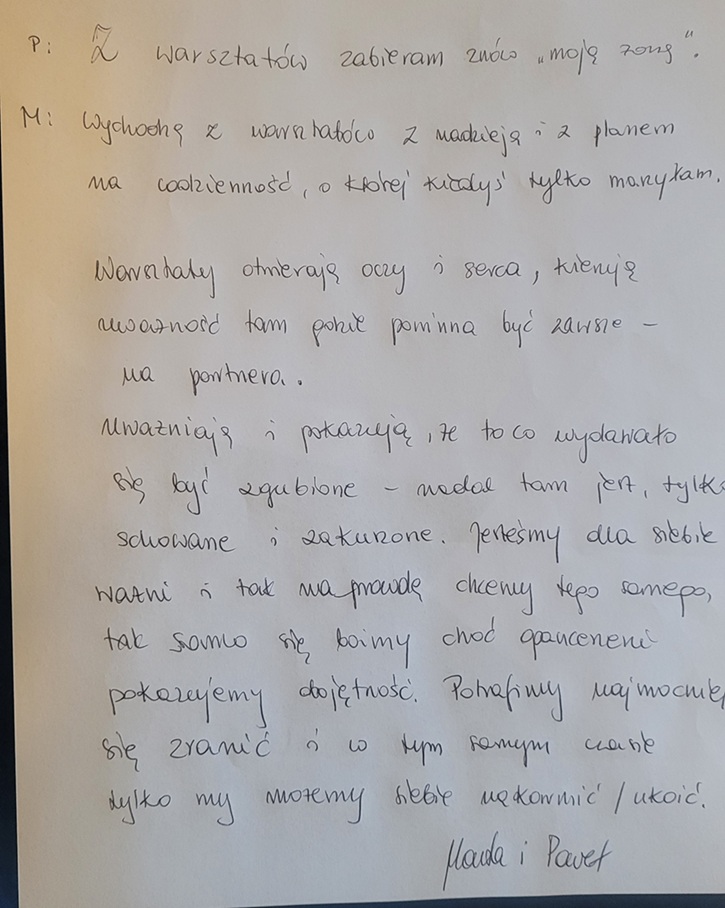 P: Z warsztatów zabieram znów „moją żonę".
M: Wychodzę z warsztatów z nadzieją i z planem
na codzienność, o której kiedyś tylko marzyłam.
Warsztaty otwierają oczy i serca, kierują
uważność tam gdzie powinna być zawsze –
na partnera.
Uważniają i pokazują, że to co wydawało
się być zgubione – nadal tam jest, tylko
schowane i zakurzone. Jesteśmy dla siebie
ważni i tak naprawdę chcemy tego samego,
tak samo się boimy choć opancerzeni
pokazujemy obojętność. Potrafimy najmocniej
się zranić i w tym samym czasie
tylko my możemy siebie nakarmić / ukoić.
i Paweł